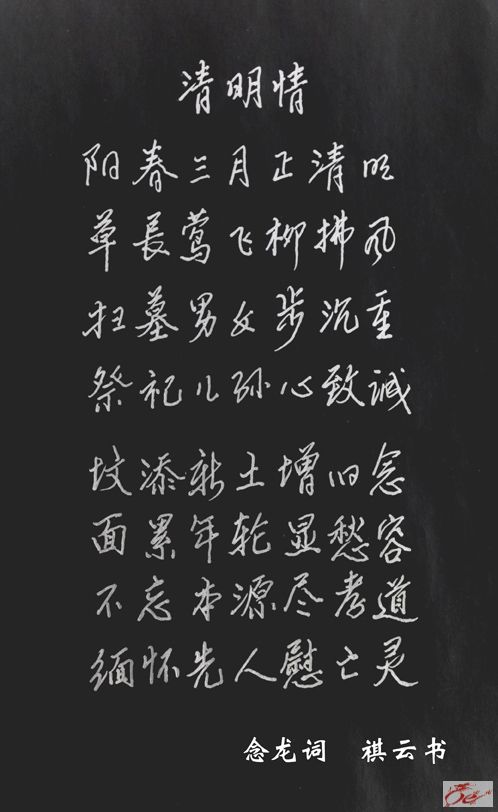 清明情
阳春三月正清明
草長莺飞柳拂风
扫墓男女步沉重
祭祀儿孙心致诚
坟添新土增旧念
面累年轮显愁容
不忘本源尽孝道
缅怀先人慰亡灵
念龙词 祺云书